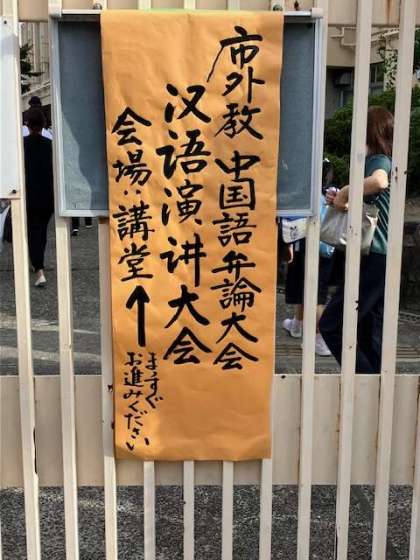 市外教 中国語弁論大会
汉语演讲大会
会場:講堂↑
まっすぐ
お進みください